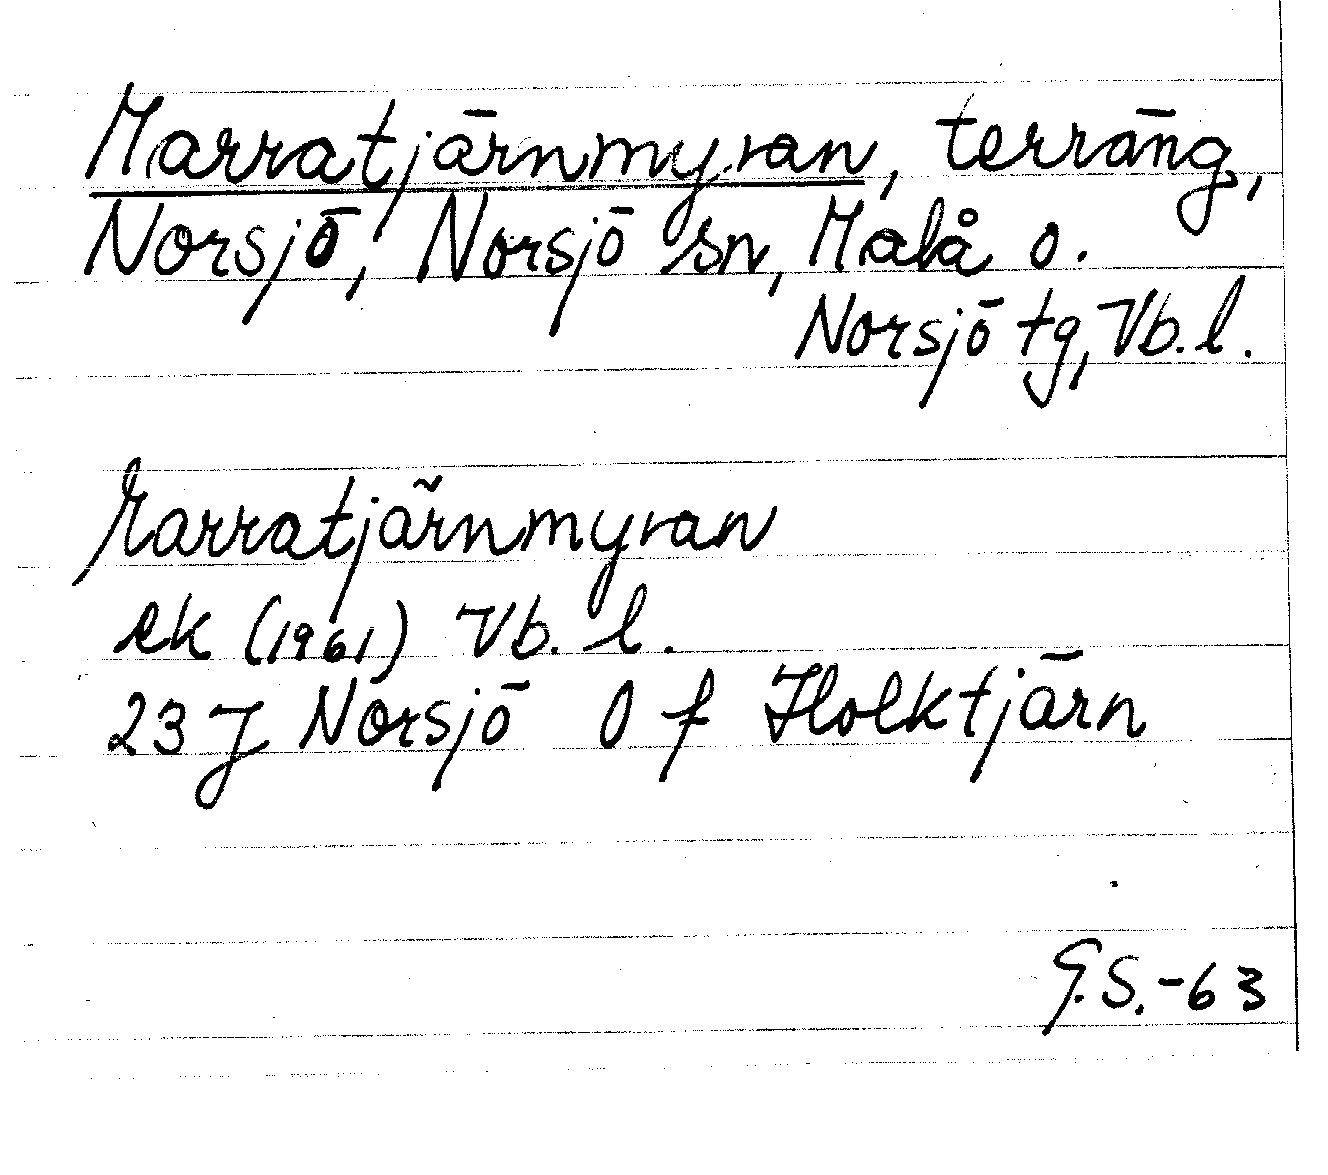 Marratjärnmyran, terräng,
Norsjö, Norsjö sn, Malå o.
Norsjö tg, Vb. l.
Marratjärnmyran
ek (1961) Vb. l.
23 J Norsjö O f Holktjärn
G.S.-63